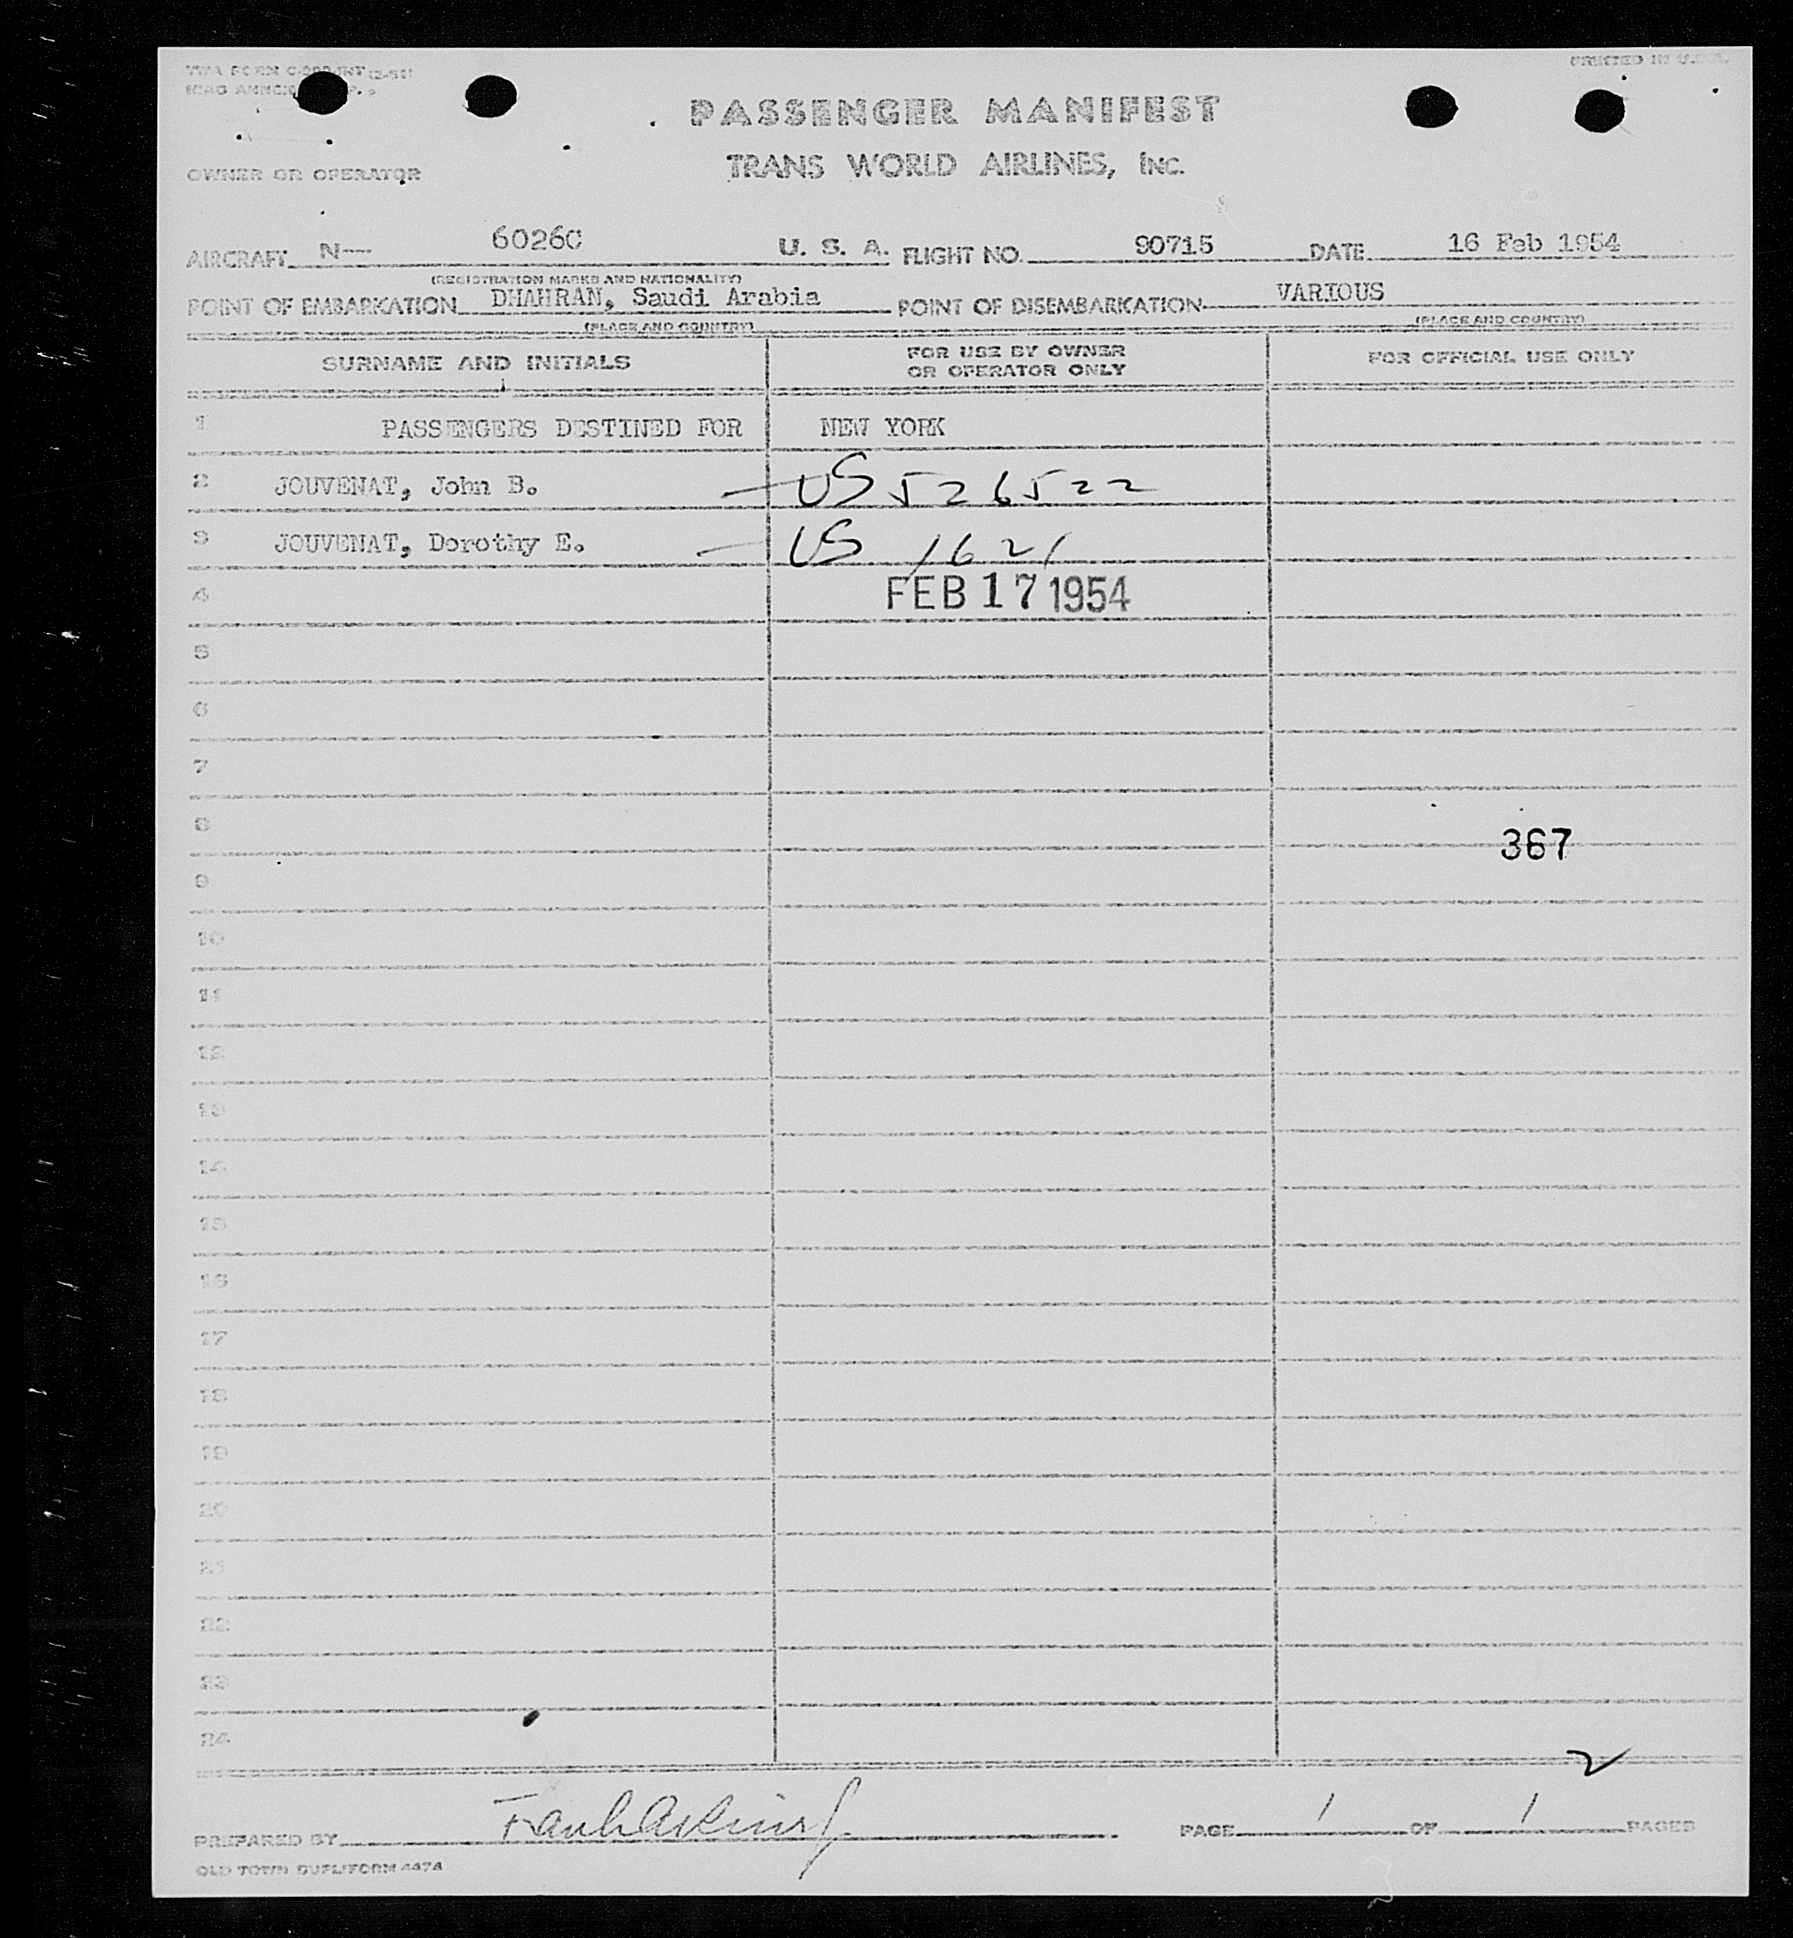 TWA FORM
PRINTED IN U.S.A.
ICAO ANNEX
PASSENGER MANIFEST
TRANS WORLD AIRLINES, INC.
OWNER OR OPERATOR
AIRCRAFT N— 6026C U. S. A. FLIGHT NO. 90715 DATE 16 Feb 1954
(REGISTRATION MARKS AND NATIONALITY)
POINT OF EMBARKATION DHAHRAN, Saudi Arabia POINT OF DISEMBARKATION VARIOUS
(PLACE AND COUNTRY) (PLACE AND COUNTRY)
SURNAME AND INITIALS FOR USE BY OWNER OR OPERATOR ONLY FOR OFFICIAL USE ONLY
1 PASSENGERS DESTINED FOR NEW YORK
2 JOUVENAT, John B. — US 526522
3 JOUVENAT, Dorothy E. — US 1621
4 FEB 17 1954
5
6
7
8
367
9
10
11
12
13
14
15
16
17
18
19
20
21
22
23
24
2
PREPARED BY PAGE 1 OF 1 PAGES
OLD TOWN DUPLIFORM 4474